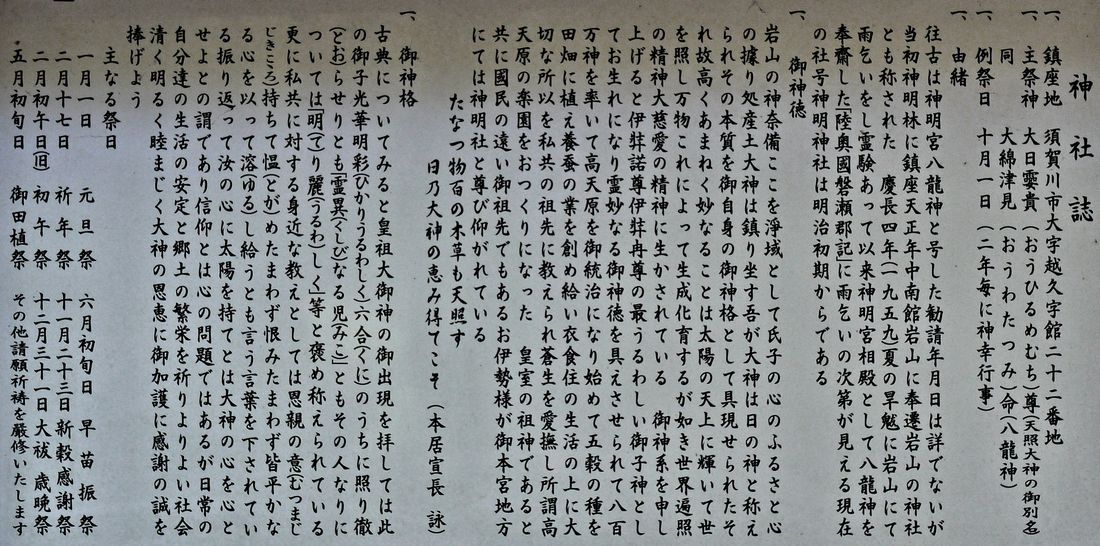 神社誌
一、鎮座地　須賀川市大字越久字館二十二番地
一、主祭神　大日孁貴（おうひるめむち）尊（天照大神の御別名）
同　大綿津見（おうわたつみ）命（八龍神）
一、例祭日　十月一日（二年毎に神幸行事）
一、由緒
往古は神明宮八龍神と号した勧請年月日は詳でないが
当初神明林に鎮座天正年中南館岩山に奉遷岩山の神社
とも称された　慶長四年（一九五九）夏の旱魃に岩山にて
雨乞いをし霊験あって以来神明宮相殿として八龍神を
奉齋した「陸奥國磐瀬郡記」に雨乞いの次第が見える現在
の社号神明神社は明治初期からである
一、御神徳
岩山の神奈備ここを浄域として氏子の心のふるさと心
の據り処産土大神は鎮り坐す吾が大神は日の神と称え
られその本質を御自身の御神格として具現せられたそ
れ故高くあまねく妙なることは太陽の天上に輝いて世
を照し万物これによって生成化育するが如き世界遍照
の精神大慈愛の精神に生かされている　御神系を申し
上げると伊弉諾尊伊弉冉尊の最うるわしい御子神とし
てお生れになり霊妙なる御神徳を具えさせられて八百
万神を率いて高天原を御統治になり始めて五穀の種を
田畑に植え養蚕の業を創め給い衣食住の生活の上に大
切な所以を私共の祖先に教えられ蒼生を愛撫し所謂高
天原の楽園をおつくりになった　皇室の祖神であると
共に國民の遠い御祖先でもあるお伊勢様が御本宮地方
にては神明社と尊び仰がれている
たなつ物百の木草も天照す
日乃大神の恵み得てこそ（本居宣長　詠）
一、御神格
古典についてみると皇祖大御神の御出現を拝しては此
の御子光華明彩（ひかりうるわしく）六合（くに）のうちに照り徹
（とお）らせりとも「霊異（くしび）なる児（みこ）」ともその人なりに
ついては「明（て）り麗（うるわ）しく」等と褒め称えられている
更に私共に対する身近な教えとしては恩親の意（むつまじ
きこころ）持ちて慍（とが）めたまわず恨みたまわず皆平かな
る心を以って溶（ゆる）し給うとも言う言葉を下されてい
る振り返って汝の心に太陽を持てとは大神の心を心と
せよとの謂であり信仰とは心の問題ではあるが日常の
自分達の生活の安定と郷土の繁栄を祈りよりよい社会
清く明るく睦まじく大神の恩恵に御加護に感謝の誠を
捧げよう
主なる祭日
一月一日　元旦祭　六月初旬日　早苗振祭
二月十七日　祈年祭　十一月二十三日　新穀感謝祭
二月初午日（旧）　初午祭　十二月三十一日　大祓　歳晩祭
五月初旬日　御田植祭　その他請願祈祷を厳修いたします